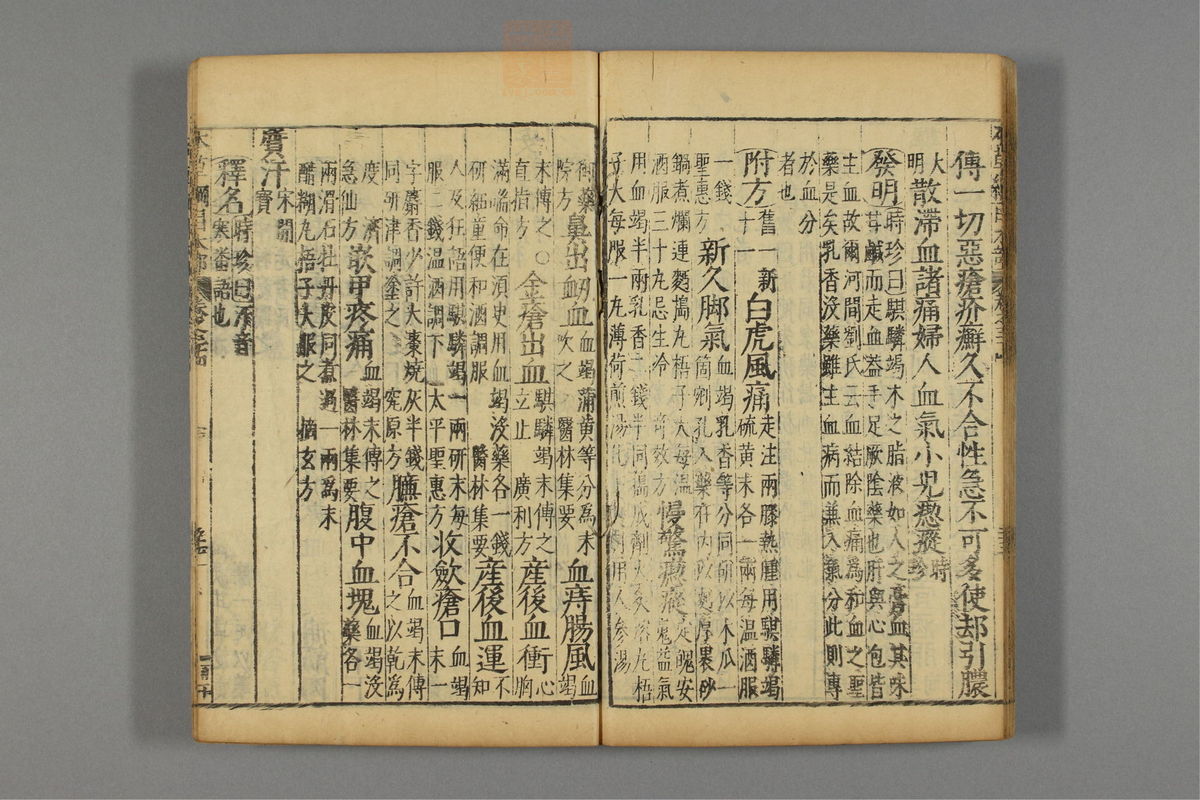 傅一切惡瘡疥癬久不合性急不可多使却引膿
大明散滯血諸痛婦人血氣小兒瘛瘲時珍
發明時珍曰騏驎竭木之脂液如人之膏血其味
甘鹹而走血蓋手足厥陰藥也肝與心包皆
主血故爾河間劉氏云血結除血痛為和血之聖
藥是矣乳香沒藥雖主血病而兼入氣分此則專
於血分
者也
附方舊一新十一白虎風痛走注兩膝熱腫用騏驎竭
硫黃末各一兩每温酒服
一錢聖惠方新久脚氣血竭乳香等分同研以木瓜一
箇剜孔入藥在內以麪厚裹砂
鍋煮爛連麪搗丸梧子大每温
酒服三十丸忌生冷奇效方慢驚瘛瘲定魄安魂益氣
用血竭半兩乳香二錢半同搗成劑火炙溶丸梧
子大每服一丸薄荷煎湯化下夏月用人參湯
御藥院方鼻出衂血血竭蒲黃等分為末吹之醫林集要血痔腸風血竭
末傅之直指方○金瘡出血騏驎竭末傅之立止廣利方產後血衝心胸
滿喘命在須臾用血竭沒藥各一錢
研細童便和酒調服醫林集要產後血運不知
人及狂語用騏驎竭一兩研末每
服二錢温酒調下太平聖惠方收歛瘡口血竭末一
字麝香少許大棗燒灰半錢
同研津調塗之究原方臁瘡不合血竭末傅之以乾為
度濟急仙方嵌甲疼痛血竭末傅之醫林集要腹中血塊血竭沒藥各一
兩滑石牡丹皮同煮過一兩為末
醋糊丸梧子大服之摘玄方
質汗宋開寶
釋名時珍曰汗音
寒番語也